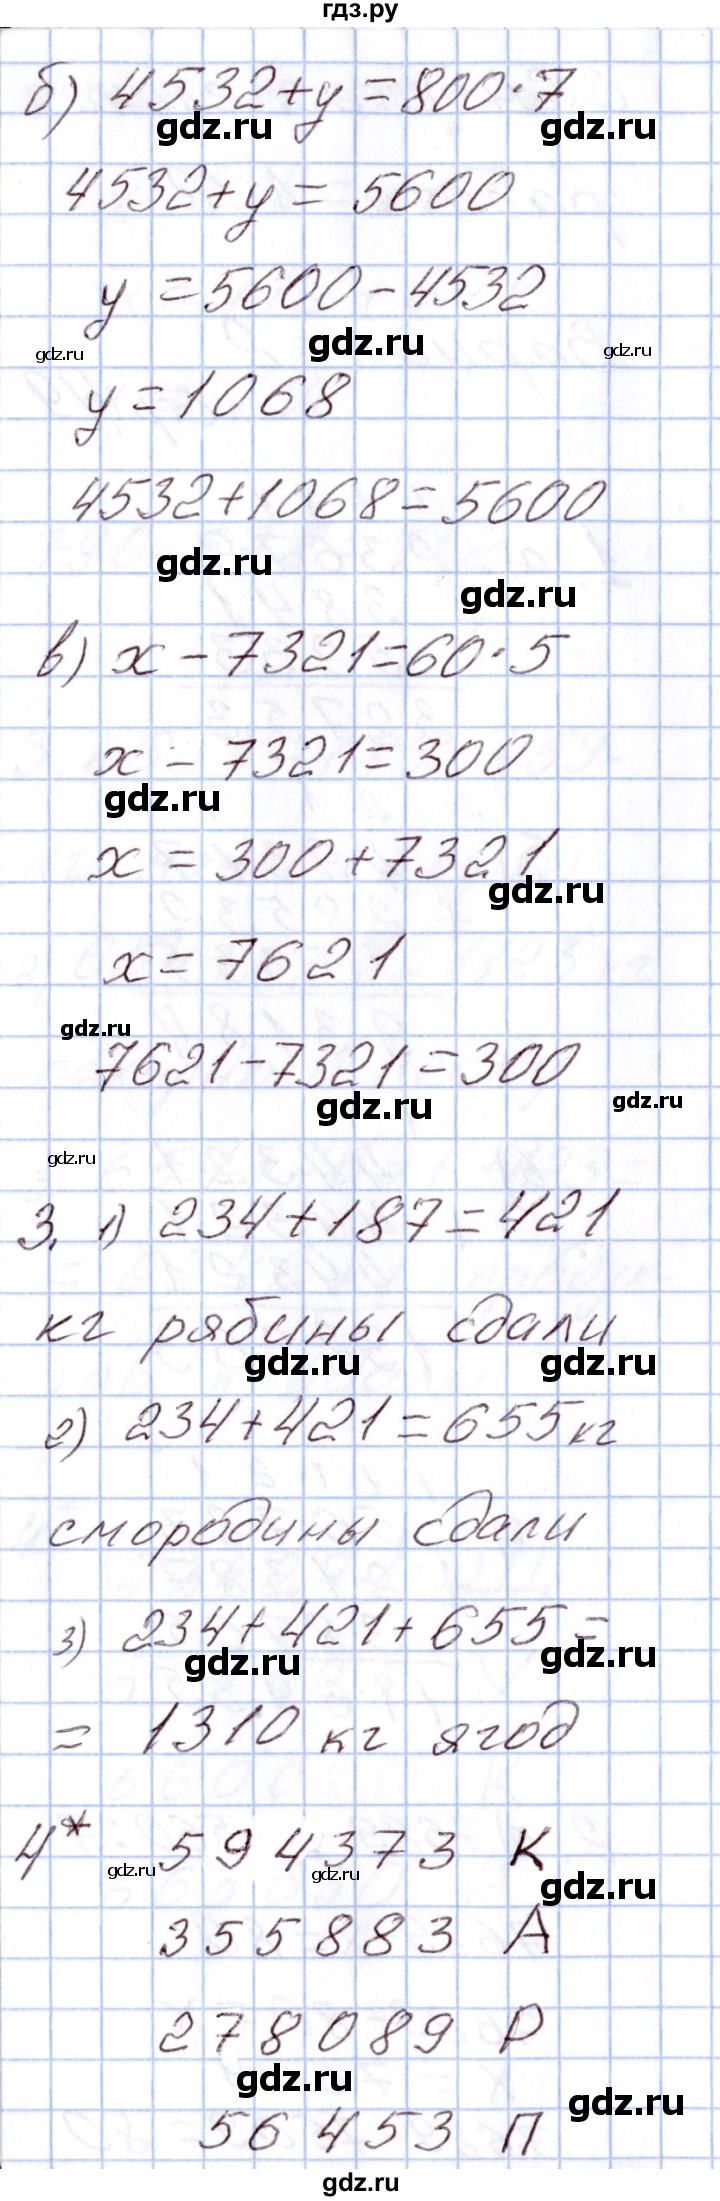 гдз.ру
б) 4532+у=800·7
gdz.ru gdz.ru
4532+у=5600
у=5600-4532
gdz.ru gdz.ru gdz.ru
у=1068
4532+1068=5600
gdz.ru
gdz.ru
в) х-7321=60·5
х-7321=300
gdz.ru
х=300+7321
gdz.ru
х=7621
gdz.ru
7621-7321=300
gdz.ru gdz.ru
gdz.ru
3. 1) 234+187=421
кг рябины сдали
gdz.ru gdz.ru
2) 234+421=655 кг
смородины сдали
3) 234+421+655=
gdz.ru gdz.ru
= 1310 кг ягод
4* 594373 К
gdz.ru gdz.ru gdz.ru
355883 А
278089 Р
gdz.ru gdz.ru
56453 П
gdz.ru